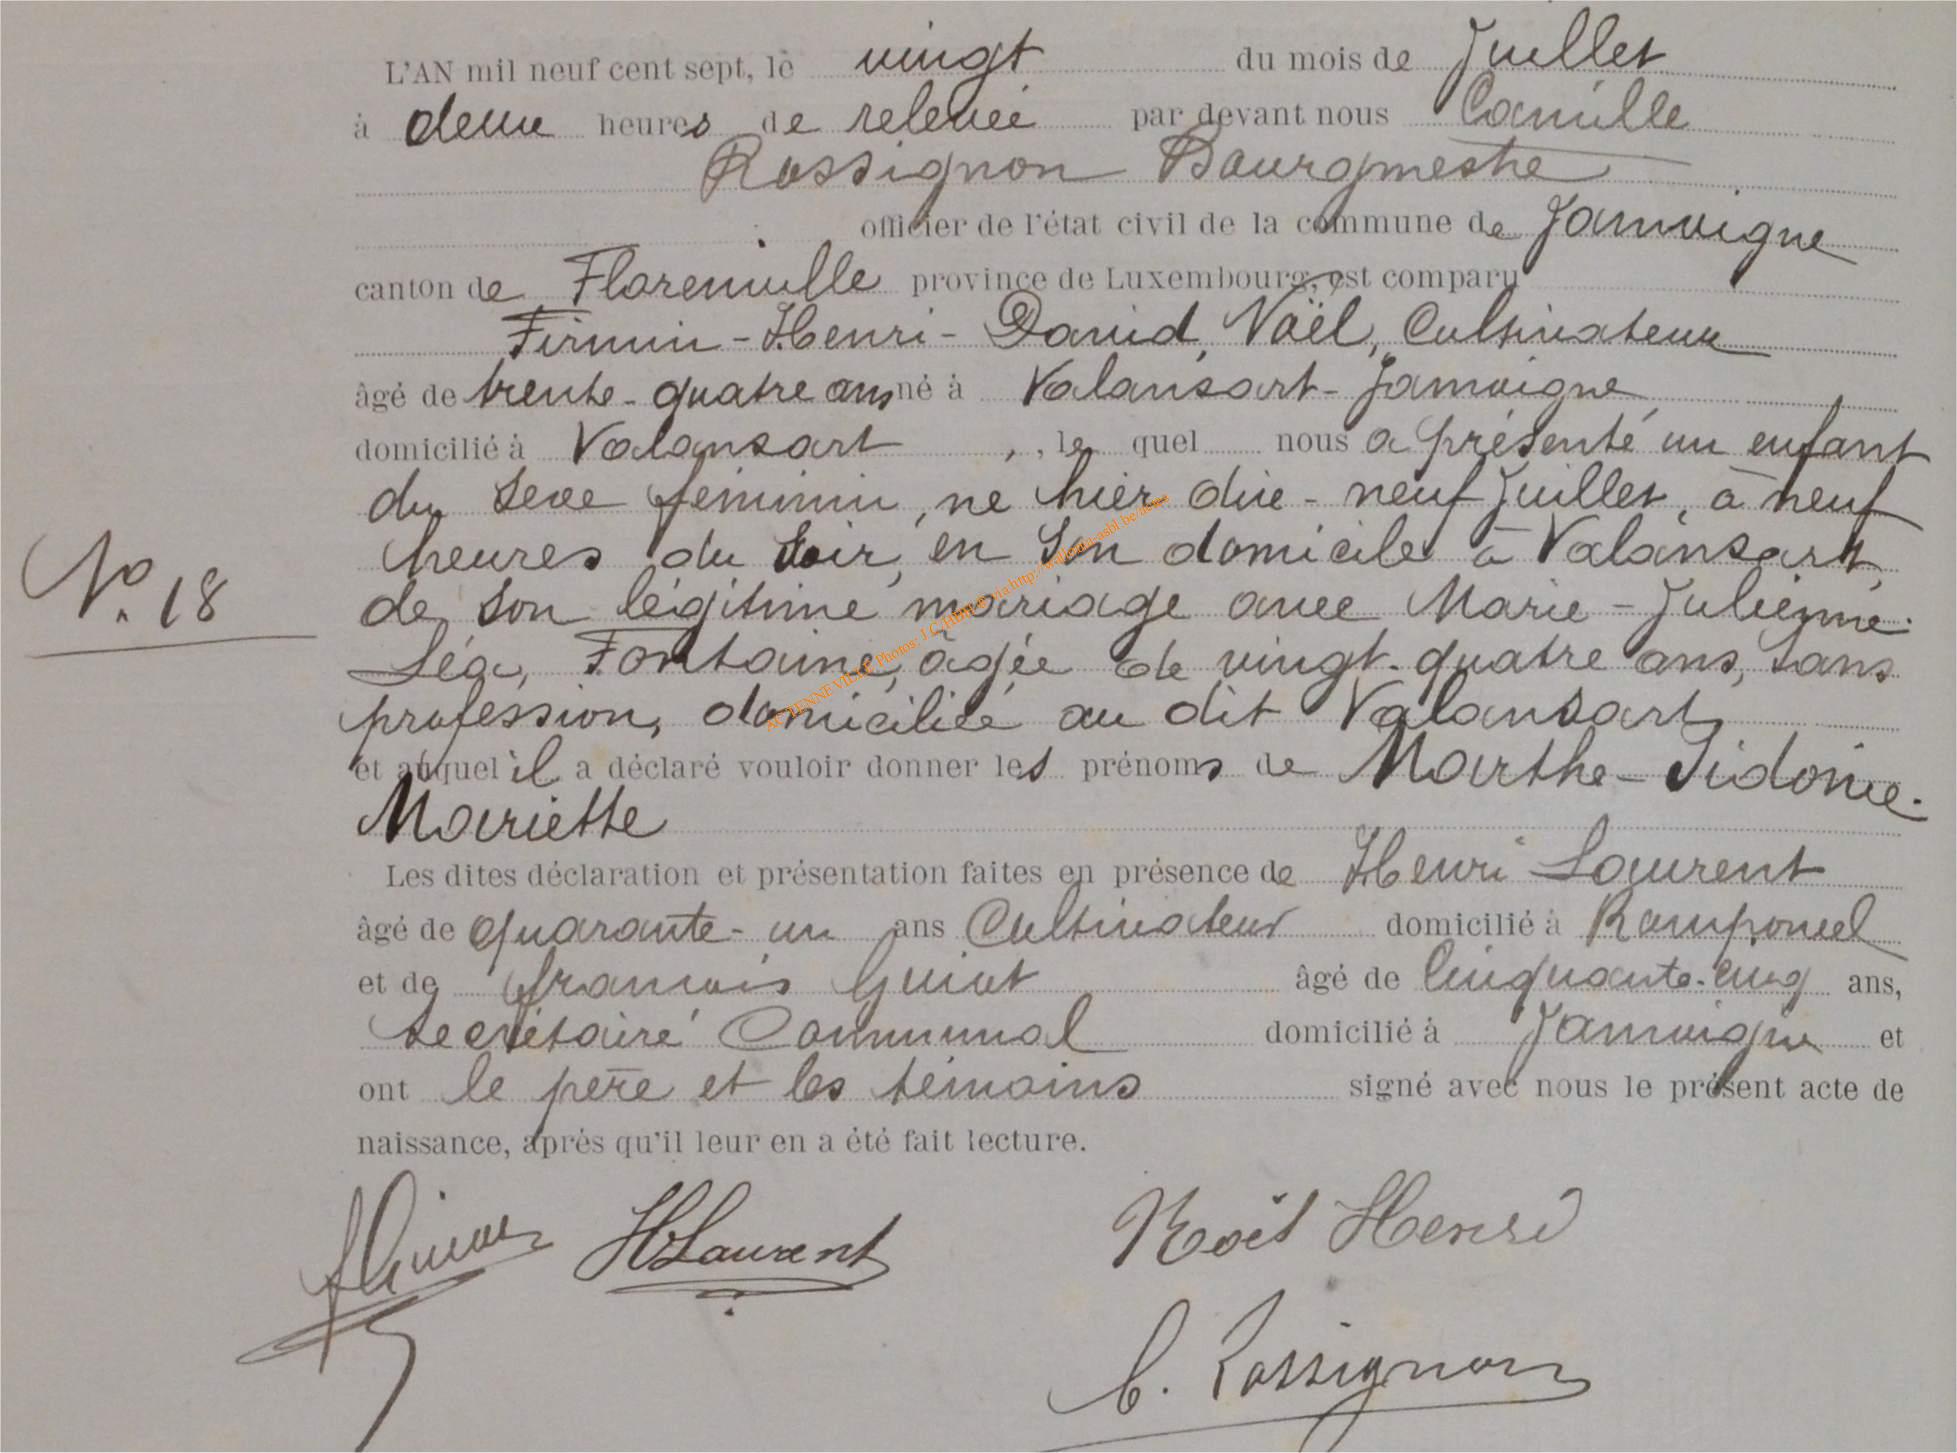 L'AN mil neuf cent sept, le vingt du mois de Juillet
à deux heures de relevée par devant nous Camille
Rossignon Bourgmestre
officier de l'état civil de la commune de Jamoigne
canton de Florenville province de Luxembourg, est comparu
Firmin-Henri-David, Noël, Cultivateur
âgé de trente-quatre ans né à Valansart-Jamoigne
domicilié à Valansart, le quel nous a présenté un enfant
du sexe féminin, né hier dix-neuf Juillet, à neuf
heures du soir, en son domicile à Valansart,
N° 18
de son légitime mariage avec Marie-Julienne-
Léa, Fontaine, âgée de vingt-quatre ans, sans
profession, domiciliée au dit Valansart,
et auquel il a déclaré vouloir donner les prénoms de Marthe-Sidonie-
Mariette
Les dites déclaration et présentation faites en présence de Henri Laurent
âgé de quarante-un ans Cultivateur domicilié à Romponcel
et de François Guiot âgé de Cinquante-cinq ans,
secrétaire Communal domicilié à Jamoigne et
ont le père et les témoins signé avec nous le présent acte de
naissance, après qu'il leur en a été fait lecture.
HLaurent Noël Henri
C. Rossignon